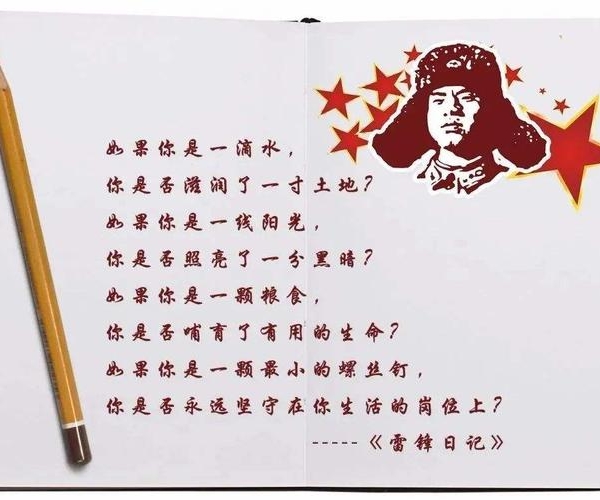 如果你是一滴水，
你是否滋润了一寸土地？
如果你是一线阳光，
你是否照亮了一分黑暗？
如果你是一颗粮食，
你是否哺育了有用的生命？
如果你是一颗最小的螺丝钉，
你是否永远坚守在你生活的岗位上？
-----《雷锋日记》